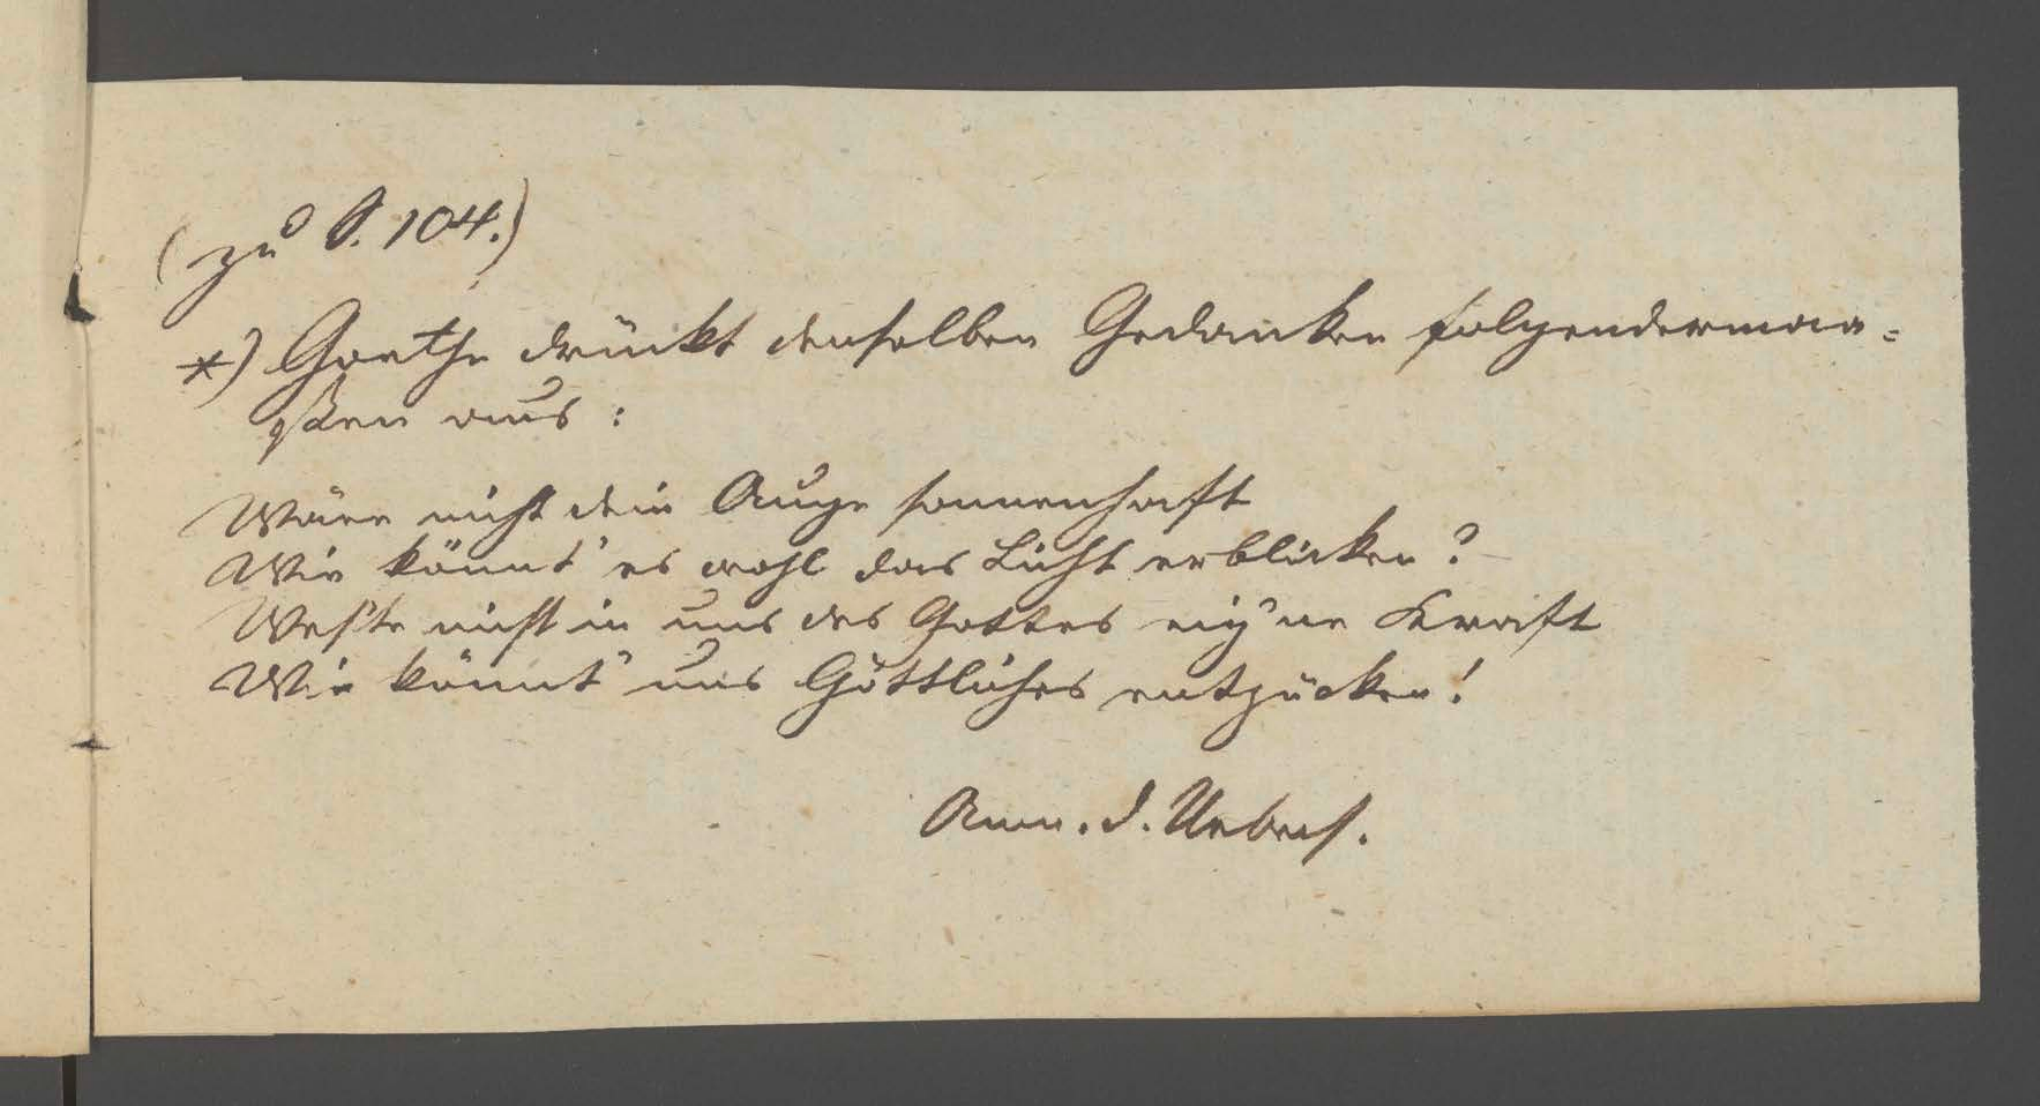 (zu S. 104.)
*) Goethe drückt denselben Gedanken folgendermaa=
ßen aus:
Wäre nicht dein Auge sonnenhaft
Wie könnt' es wohl das Licht erblicken?
Webte nicht in uns des Gottes eig'ne Kraft
Wie könnt' uns Göttliches entzücken!
Anm. d. Uebers.